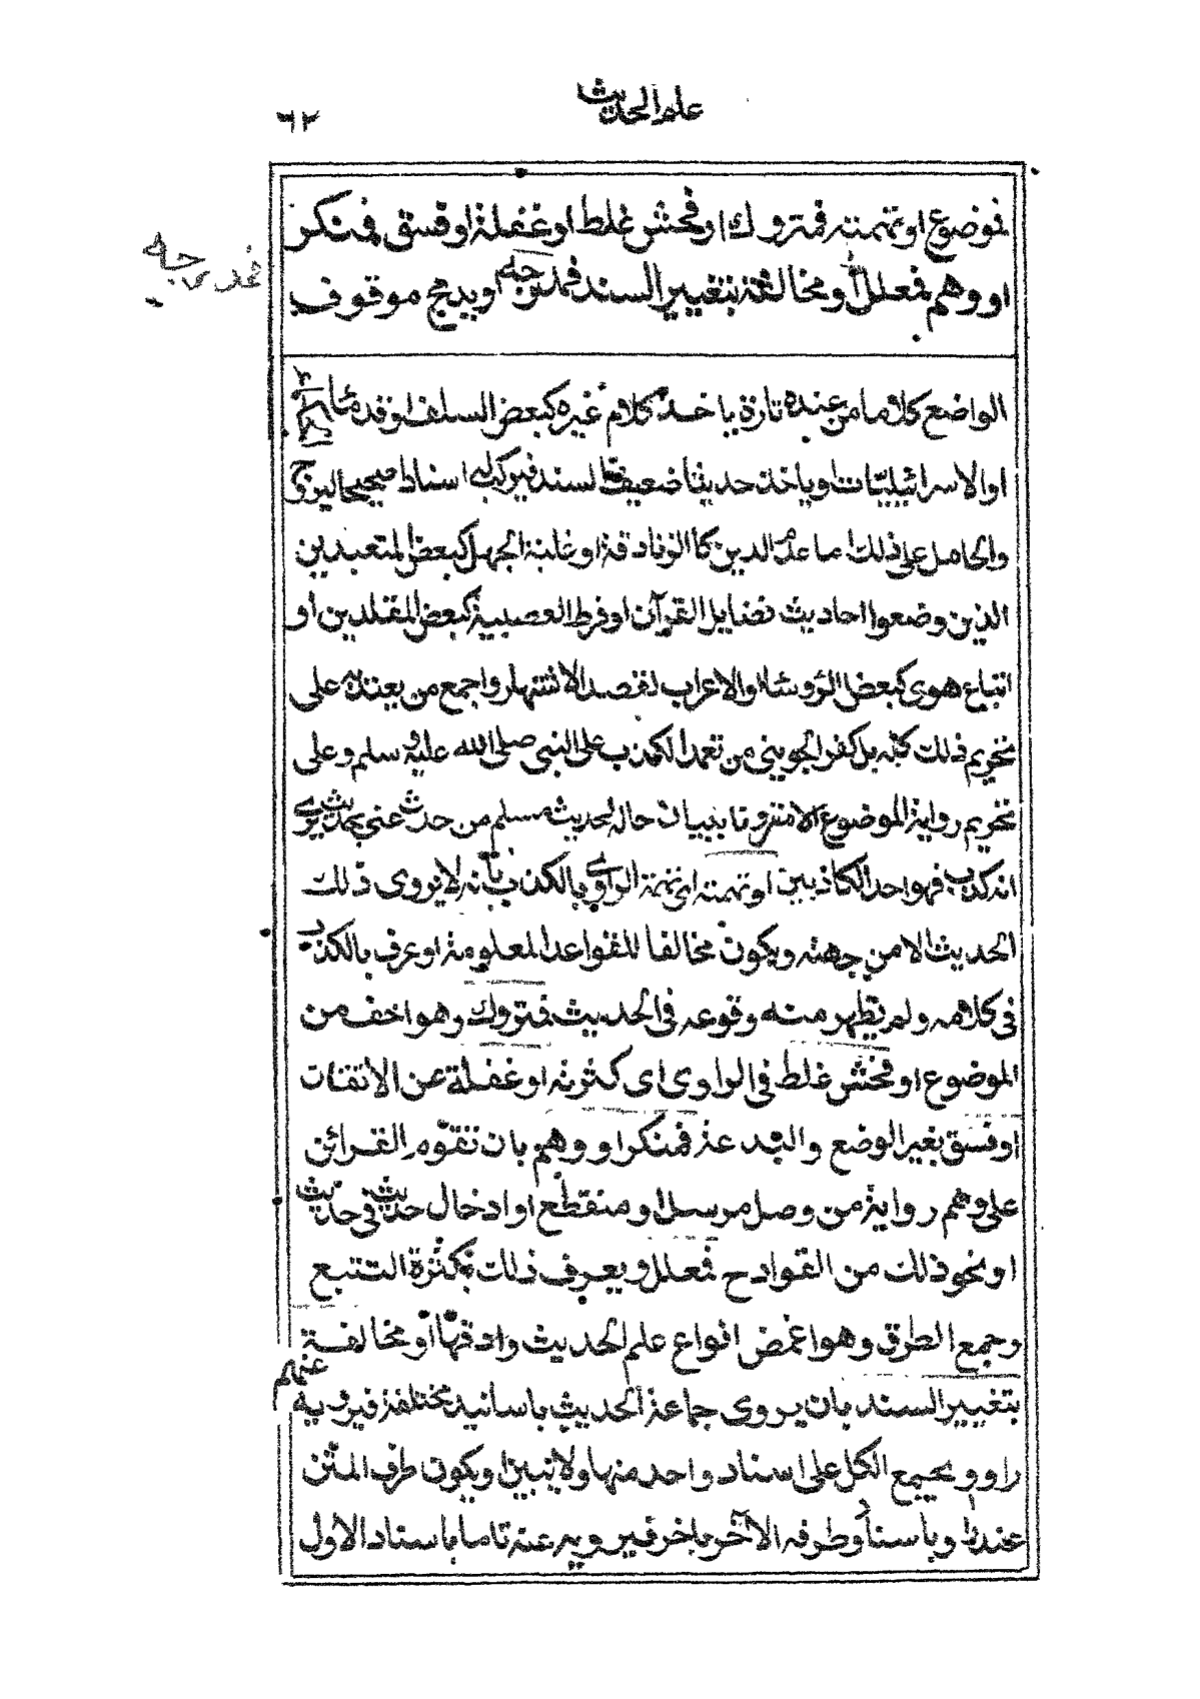 علم الحديث
٦٢
فموضوع او تهمته فمتروك او فحش غلط او غفلة او فسق فمنكر
او وهم فمعلل او مخالفة بتغيير السند فمدرجه وبدمج موقوف
فمدرجه
الواضع كلاما من عنده تارة ياخذ كلام غيره كبعض السلف او قدماء الحكماء
او الاسرائيليات او ياخذ حديثا ضعيف السند فيركب له اسنادا صحيحا ليروج
والحامل على ذلك اما عدم الدين كالزنادقة او غلبة الجهل كبعض المتعبدين
الذين وضعوا احاديث فضايل القرآن او فرط العصبية كبعض المقلدين او
اتباع هوى كبعض الرؤسا او الاعراب لقصد الاشتهار واجمع من يعتد به على
تحريم ذلك كله بل كفر الجويني من تعمد الكذب على النبي صلى الله عليه وسلم وعلى
تحريم رواية الموضوع الا مقرونا ببيان حاله لحديث مسلم من حدث عني بحديث يرى
انه كذب فهو احد الكاذبين او تهمته اي تهمة الراوي بالكذب بانه لا يروى ذلك
الحديث الا من جهته ويكون مخالفا للقواعد المعلومة او عرف بالكذب
في كلامه ولم يظهر منه وقوعه في الحديث فمتروك وهو اخف من
الموضوع او فحش غلط في الراوى اى كثرته او غفلة عن الاتقان
او فسق بغير الوضع والبدعة فمنكر او وهم بان تقوم القرائن
على وهم رواية من وصل مرسل او منقطع او ادخال حديث في حديث
او نحو ذلك من القوادح فمعلل ويعرف ذلك بكثرة التتبع
وجمع الطرق وهو اغمض انواع علم الحديث وادقها او مخالفة
بتغيير السند بان يروى جماعة الحديث باسانيد مختلفة فيرويه عنهم
راو ويجمع الكل على اسناد واحد منها ولا يبين او يكون طرف المتن
عند راو باسناد وطرفه الآخر باخر فيرويه عنه تاما باسناد الاول